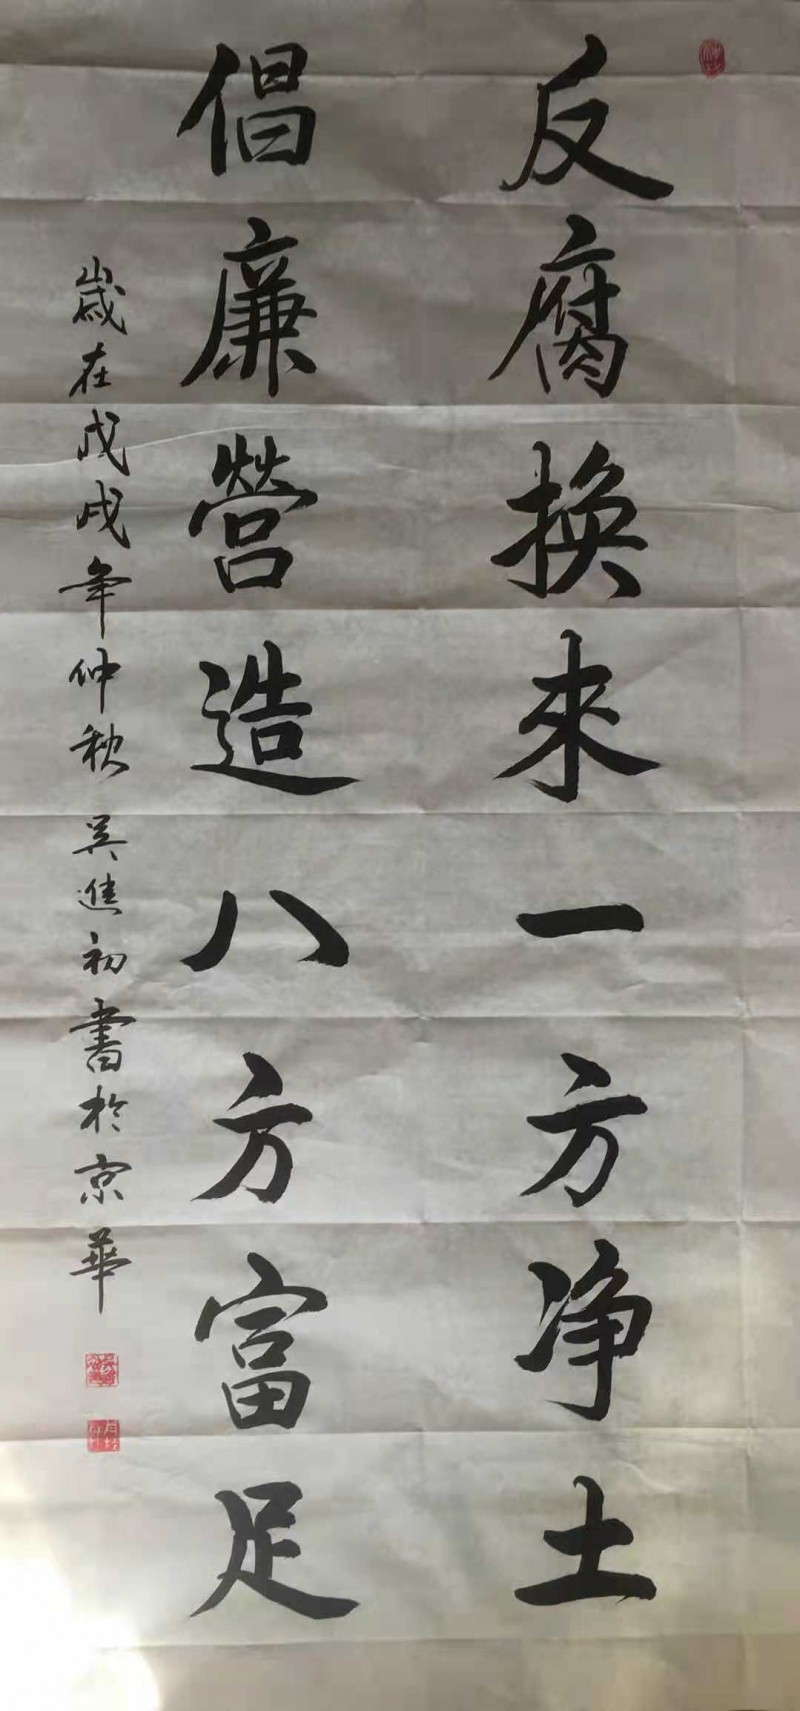 反腐换來一方净土
倡廉營造八方富足
歲在戊戌年仲秋吴進初書於京華